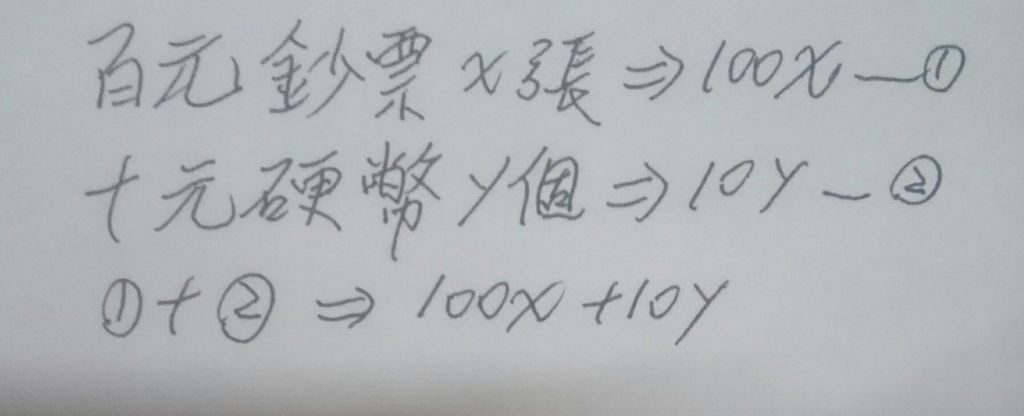 百元鈔票x張⇒100x—①
十元硬幣y個⇒10y—②
①+②⇒100x+10y